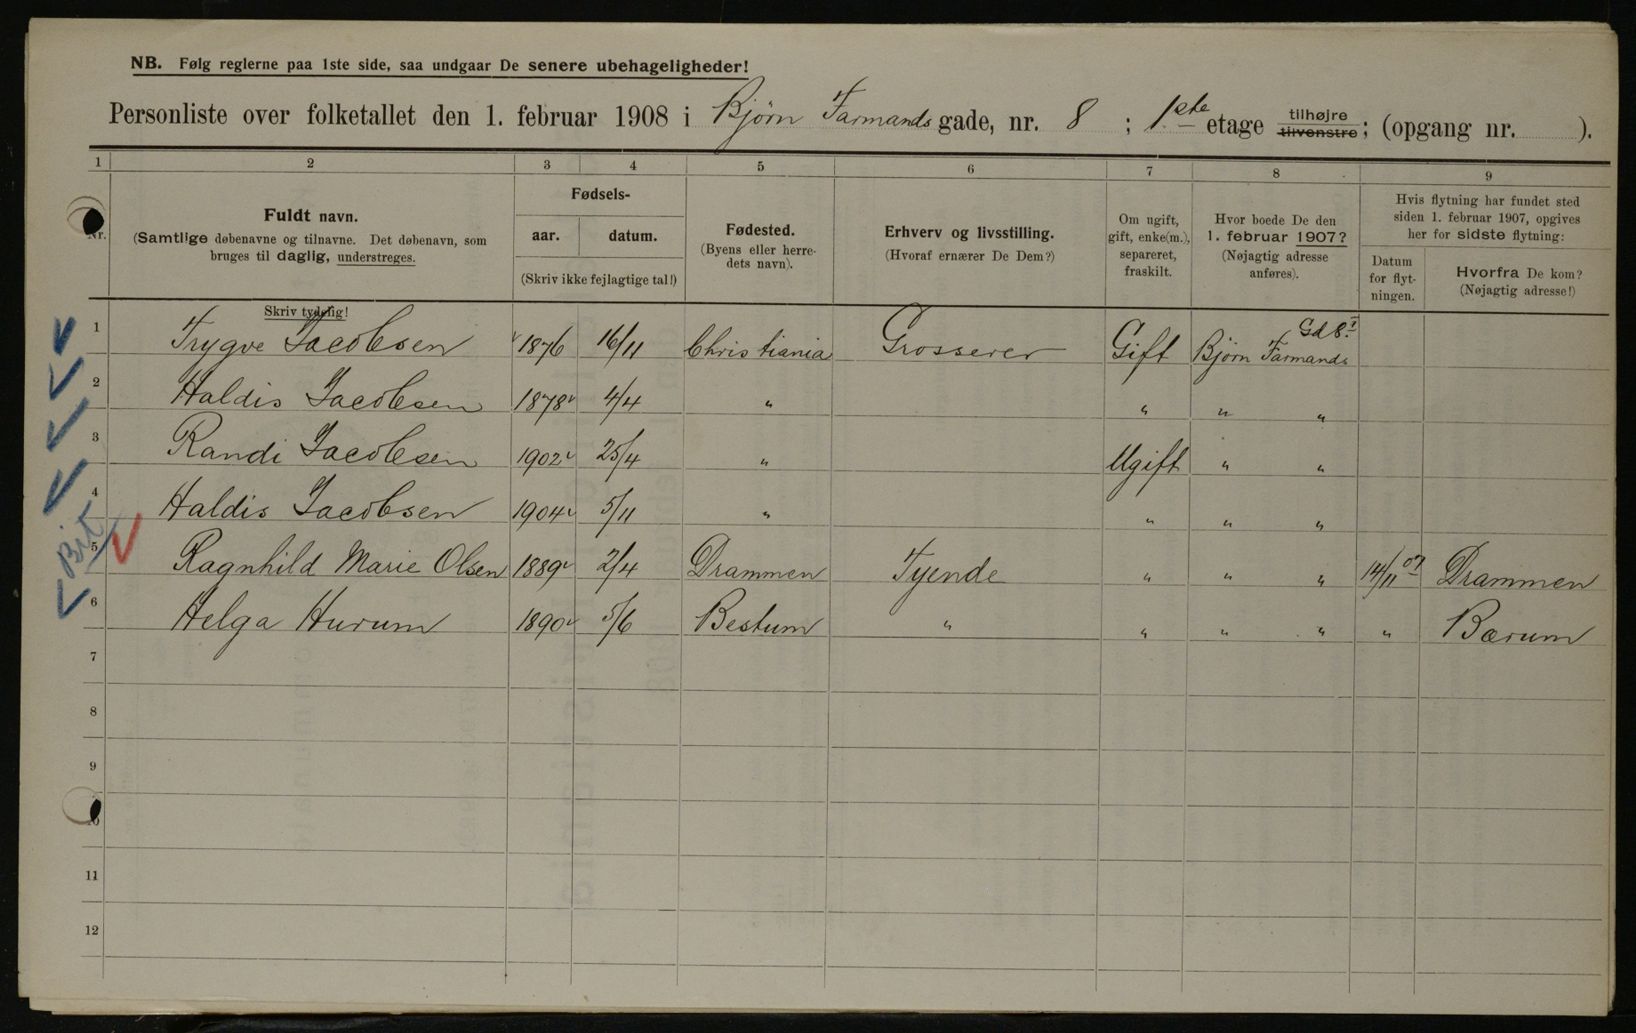 NB. Følg reglerne paa 1ste side, saa undgaar De senere ubehageligheder!
Personliste over folketallet den 1. februar 1908 i Bjørn Farmands gade, nr. 8 ; 1ste etage tilhøjre tilvenstre; (opgang nr. ).
1 2 3 4 5 6 7 8 9
Nr. Fuldt navn. (Samtlige døbenavne og tilnavne. Det døbenavn, som bruges til daglig, understreges.
Fødsels- aar. datum. (Skriv ikke fejlagtige tal!)
Fødested. (Byens eller herredets navn).
Erhverv og livsstilling. (Hvoraf ernærer De Dem?)
Om ugift, gift, enke(m.), separeret, fraskilt.
Hvor boede De den 1. februar 1907? (Nøjagtig adresse anføres).
Hvis flytning har fundet sted siden 1. februar 1907, opgives her for sidste flytning:
Datum for flytningen. Hvorfra De kom? (Nøjagtig adresse!)
Skriv tydelig!
1 Trygve Jacobsen 1876 16/11 Christiania Grosserer Gift Bjørn Farmands Gd 8 I
2 Haldis Jacobsen 1878 4/4 " " " "
3 Randi Jacobsen 1902 25/4 " Ugift " "
4 Haldis Jacobsen 1904 5/11 " " " "
Bit
5 Ragnhild Marie Olsen 1889 2/4 Drammen Tjende " " " 14/11 07 Drammen
6 Helga Hurum 1890 5/6 Bestum " " " " " Bærum
7
8
9
10
11
12